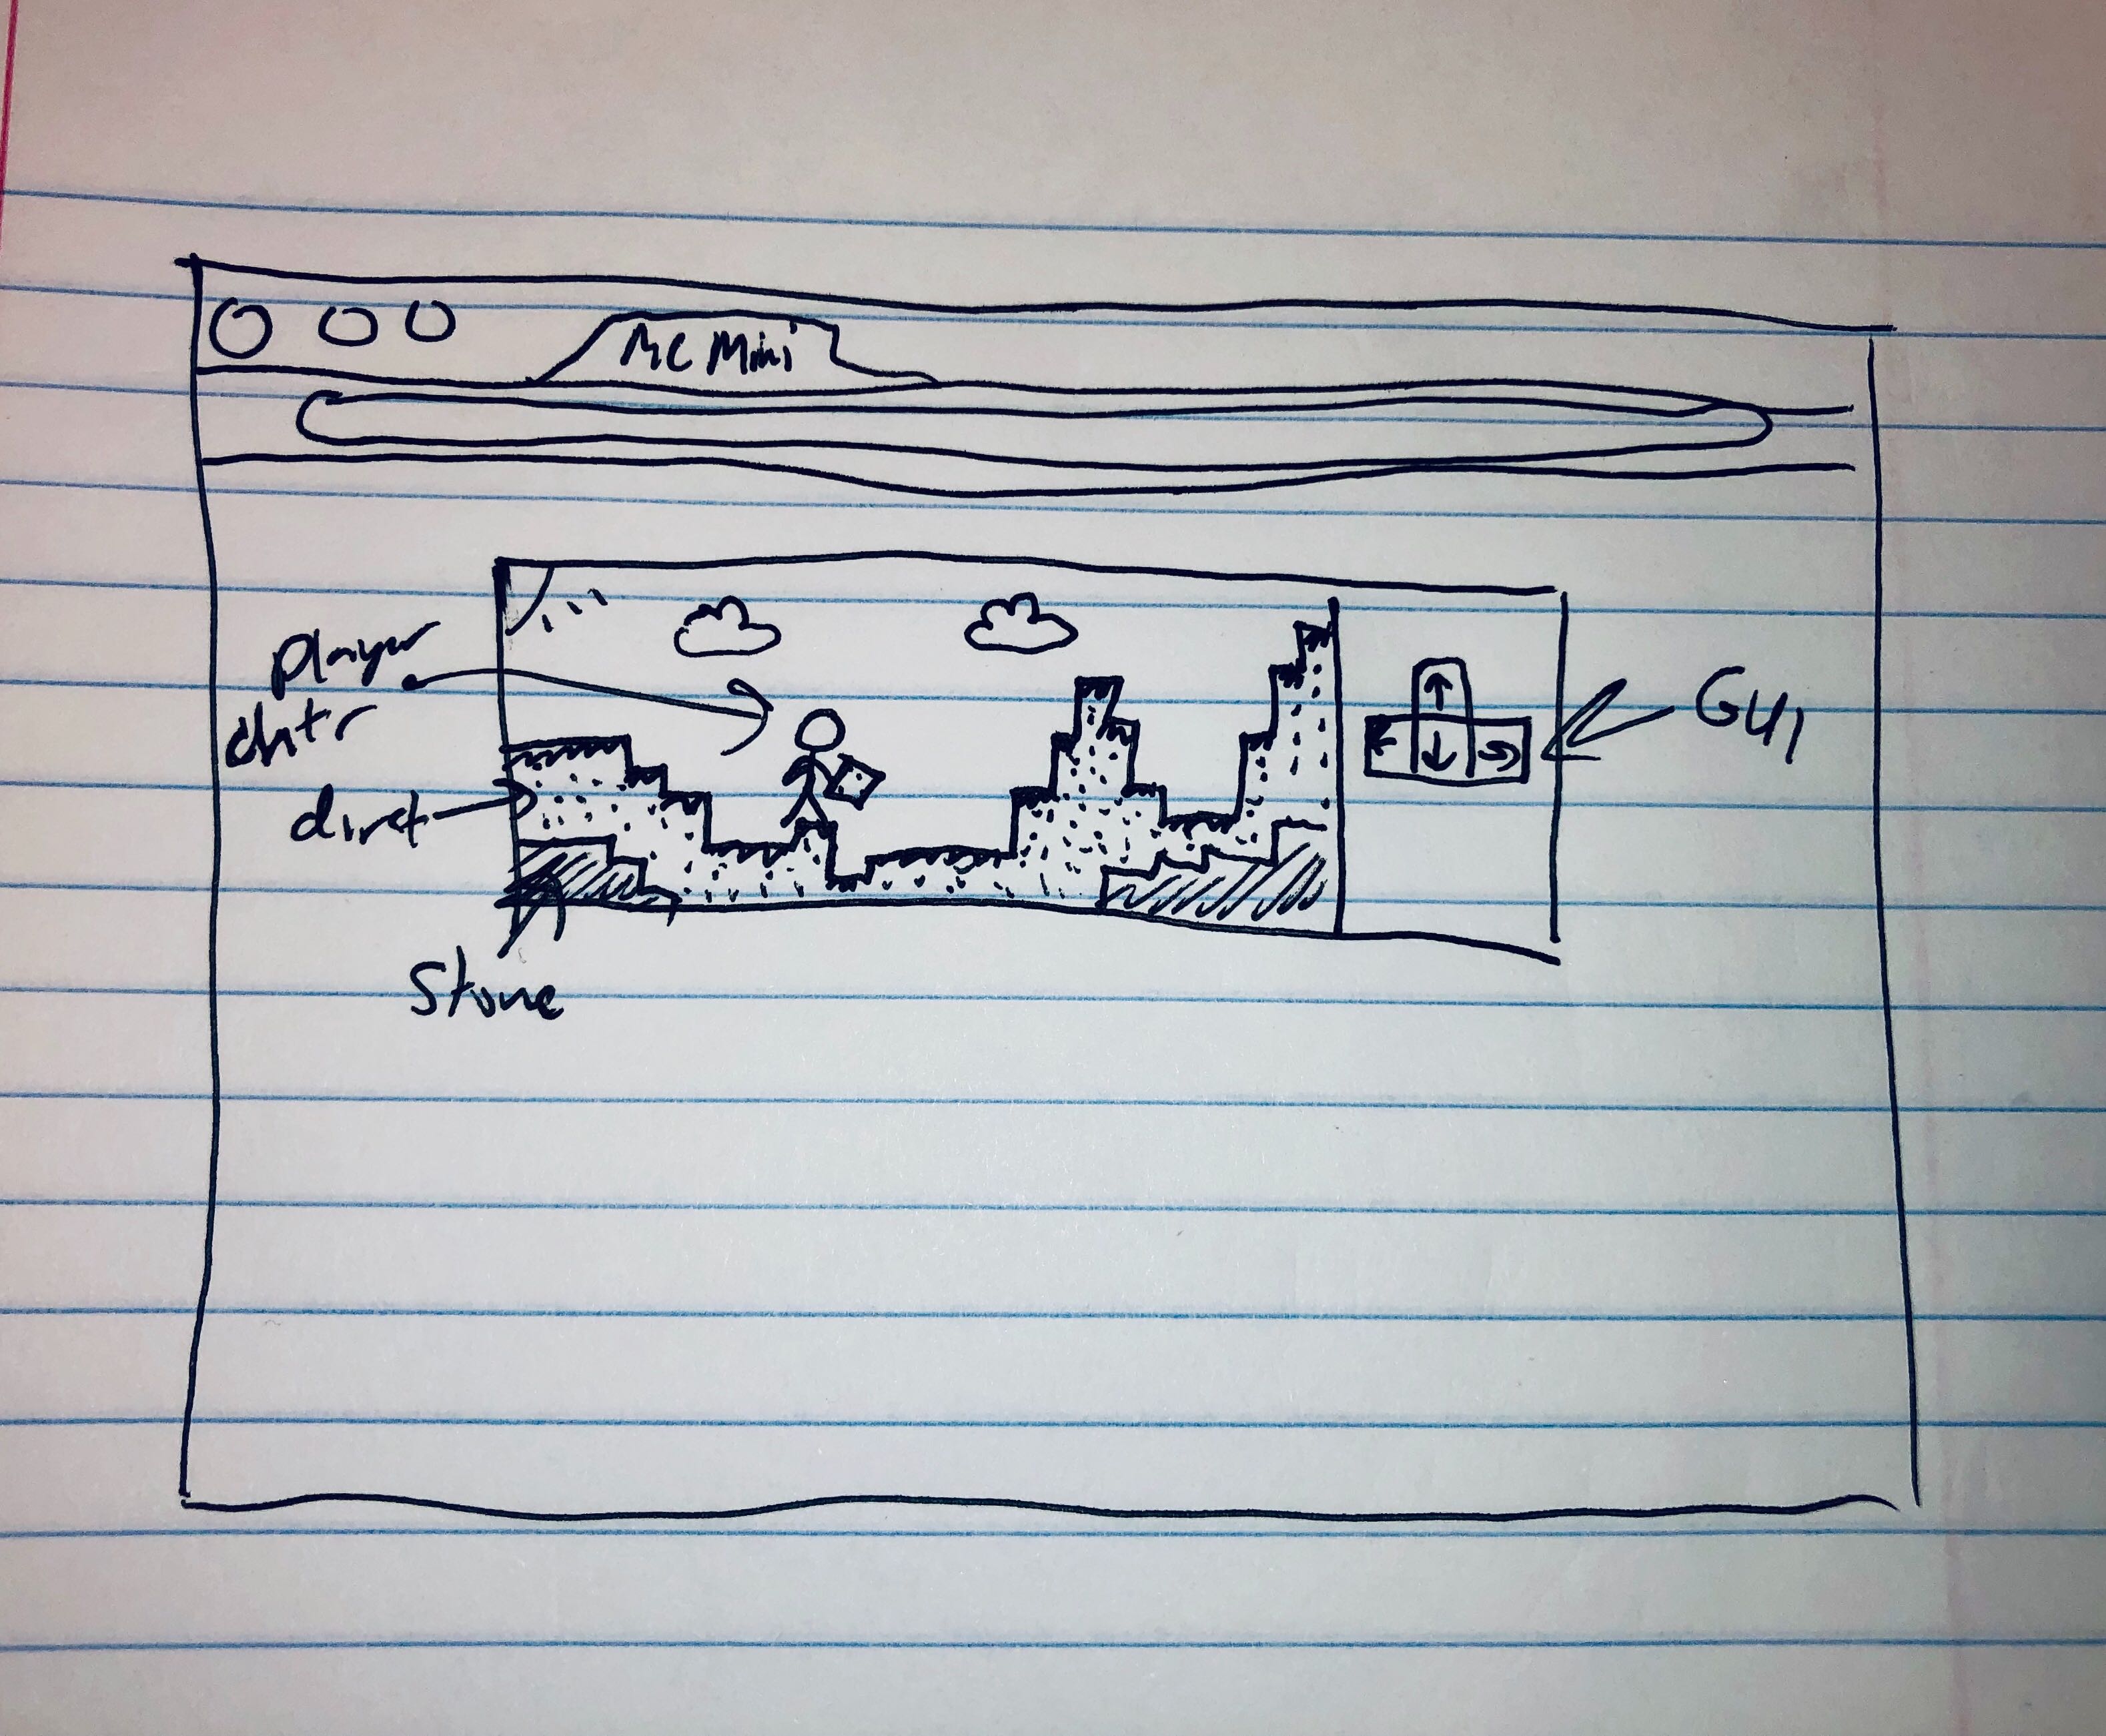 MC Mini
Player
chtr
diret
Stone
GUI